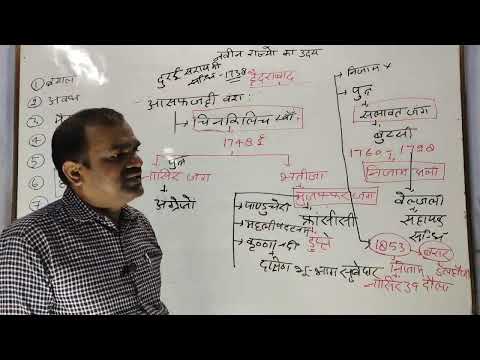 नवीन राज्यो का उदय
दुरई सराय की
संधि - 1738
हैदराबाद
① बंगाल
② अवध
③
④
⑤
⑥
⑦
आसफजाही वंश :
चिनकिलिच खाँ
1748 ई
पुत्र
नासिर जंग
अंग्रेजो
भतीजा
मुजफ्फर जंग
फ्रांसीसी
डुप्ले
पाण्डुचेरी
मछलीपट्टनम
कृष्णा नदी
दक्षिण भू-भाग सूबेदार
निजाम
पुत्र
सलाबत जंग
बुस्सी
1760 ई, 1798
निजाम अली
वेल्जली
सहायक
संधि
1853
बरार
निजाम
डलहौजी
नासिर उद दौला